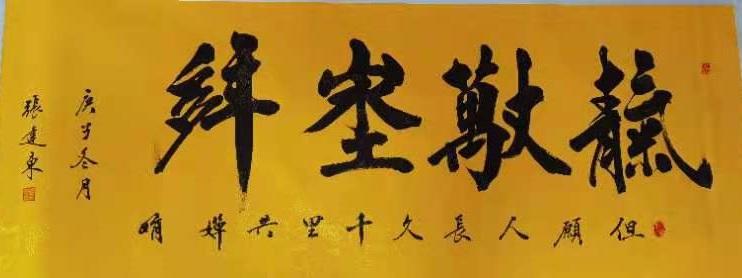 靝埊
但願人長久千里共嬋娟
庚子冬月
張建東